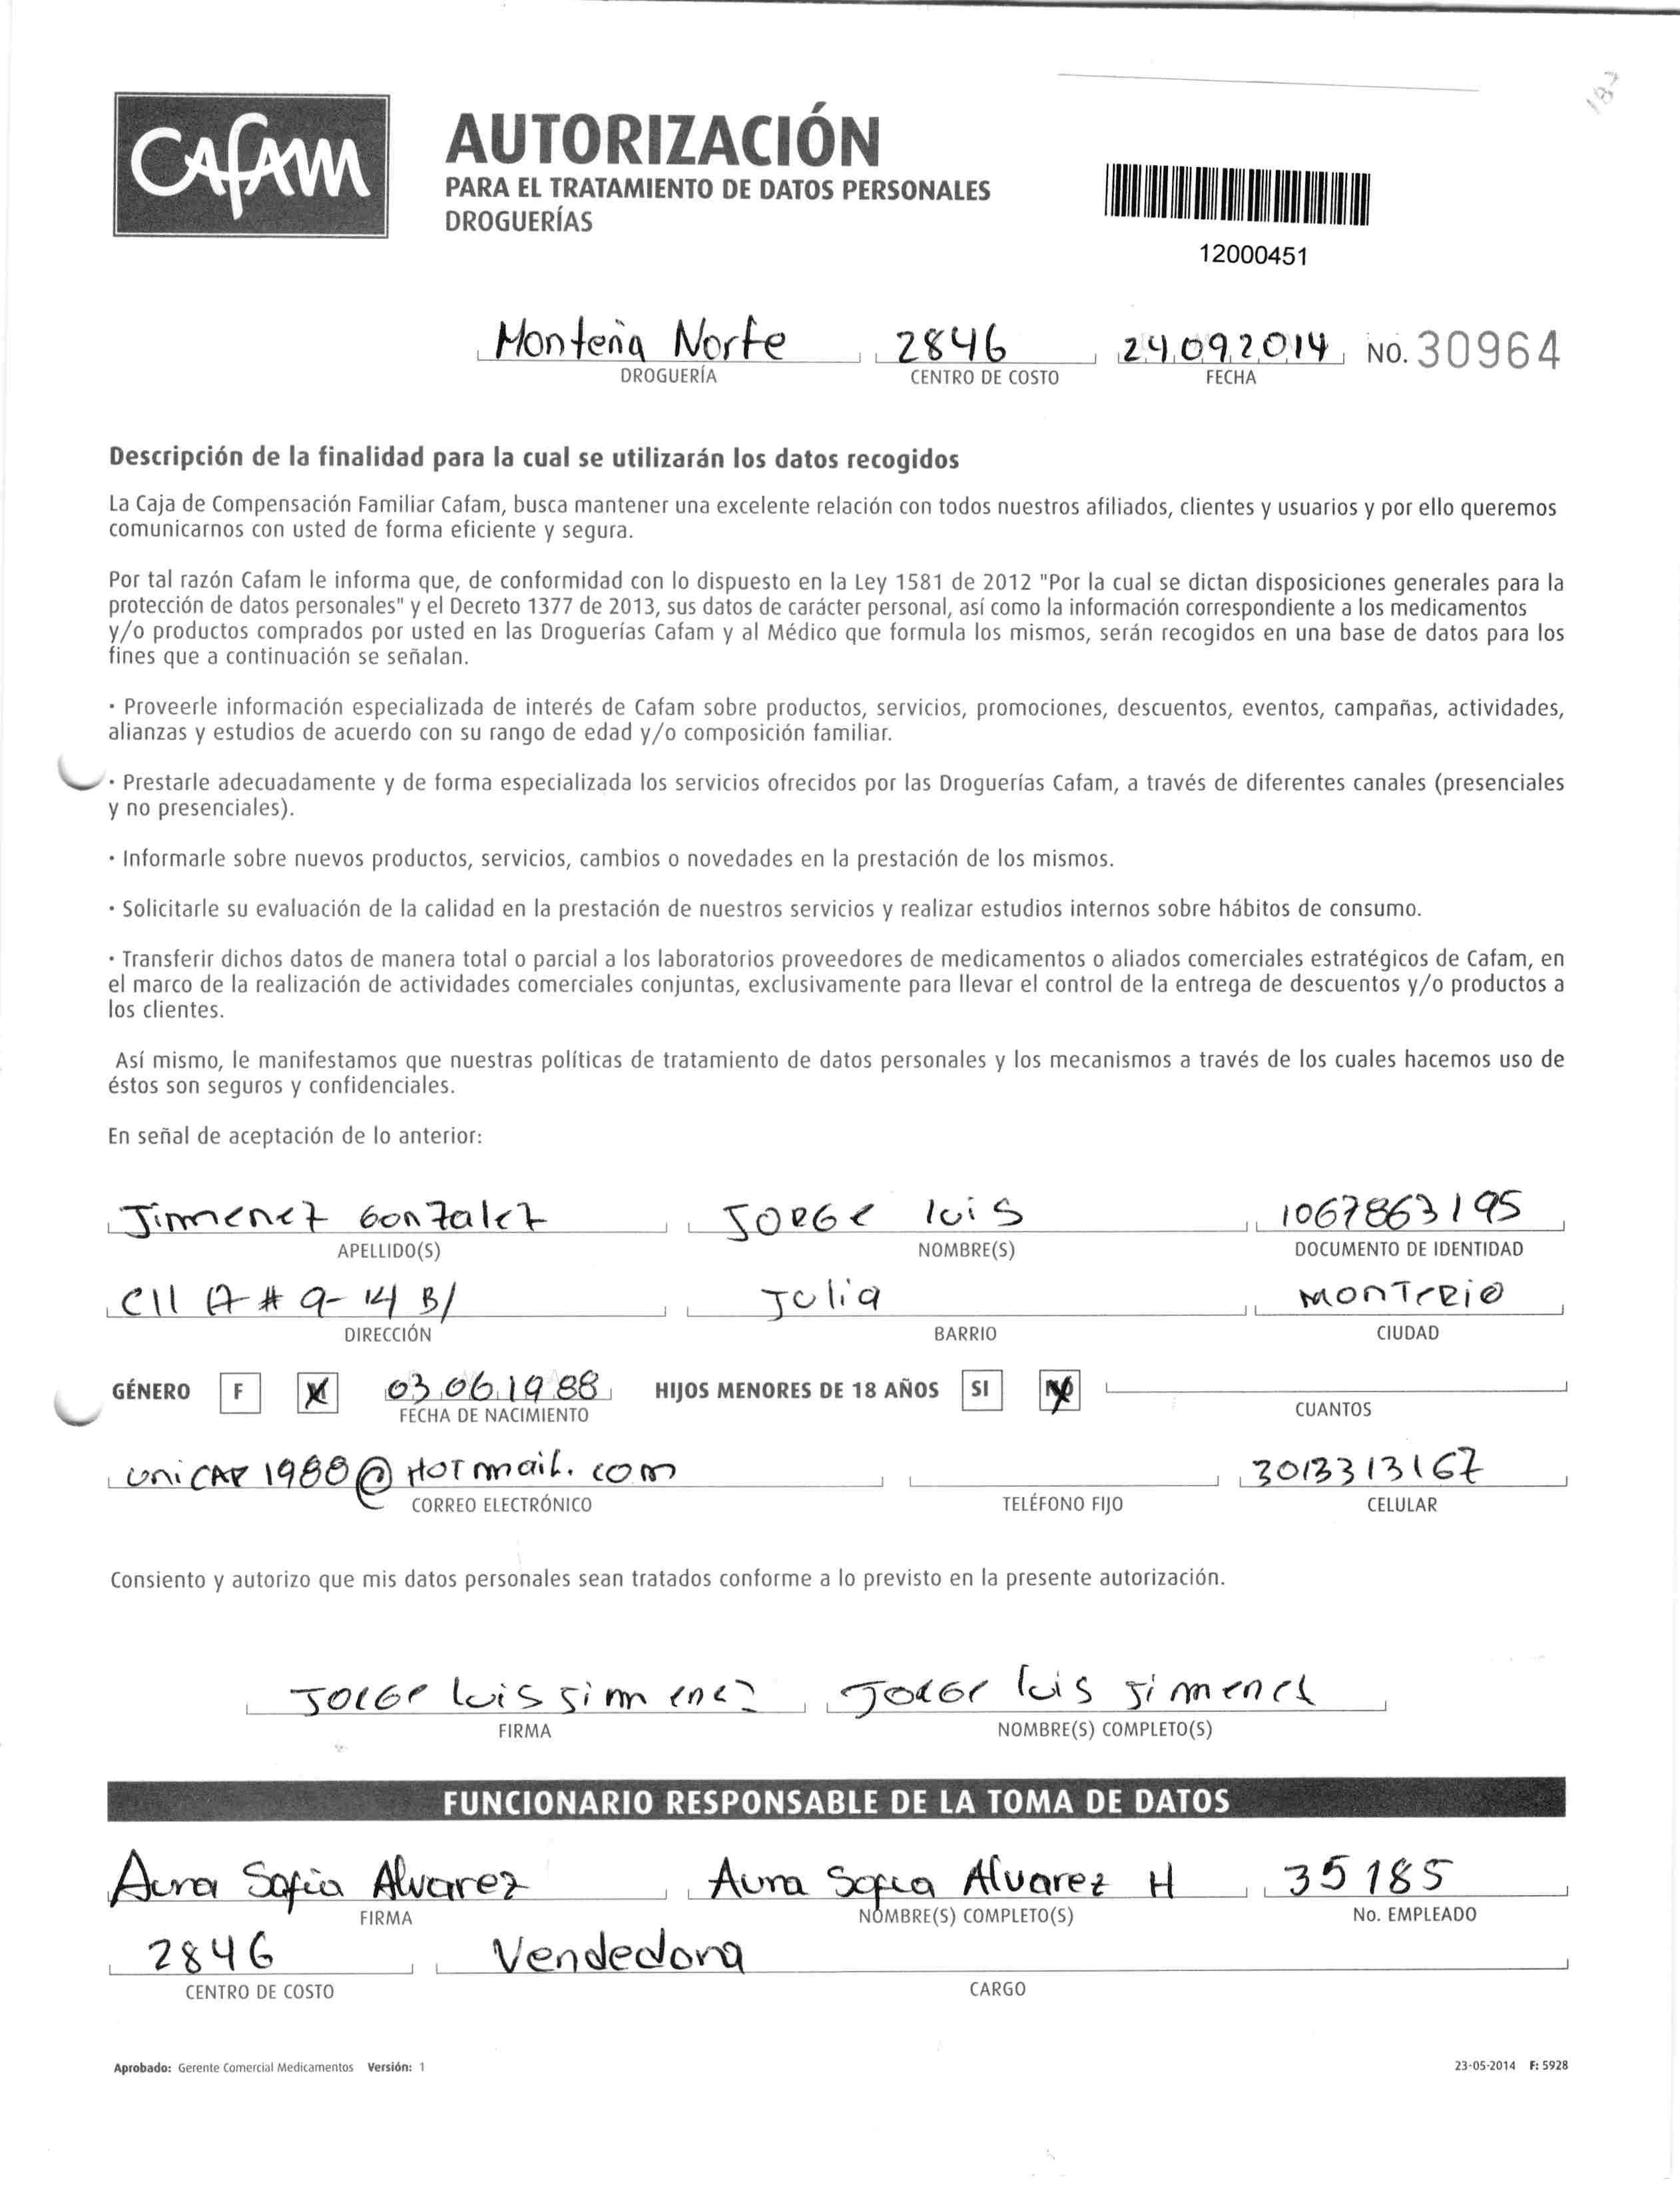 CAFAM
AUTORIZACIÓN
PARA EL TRATAMIENTO DE DATOS PERSONALES
DROGUERÍAS
12000451
Montería Norte 2846 24.09.2014 NO. 30964
DROGUERÍA CENTRO DE COSTO FECHA
Descripción de la finalidad para la cual se utilizarán los datos recogidos
La Caja de Compensación Familiar Cafam, busca mantener una excelente relación con todos nuestros afiliados, clientes y usuarios y por ello queremos
comunicarnos con usted de forma eficiente y segura.
Por tal razón Cafam le informa que, de conformidad con lo dispuesto en la Ley 1581 de 2012 "Por la cual se dictan disposiciones generales para la
protección de datos personales" y el Decreto 1377 de 2013, sus datos de carácter personal, así como la información correspondiente a los medicamentos
y/o productos comprados por usted en las Droguerías Cafam y al Médico que formula los mismos, serán recogidos en una base de datos para los
fines que a continuación se señalan.
· Proveerle información especializada de interés de Cafam sobre productos, servicios, promociones, descuentos, eventos, campañas, actividades,
alianzas y estudios de acuerdo con su rango de edad y/o composición familiar.
· Prestarle adecuadamente y de forma especializada los servicios ofrecidos por las Droguerías Cafam, a través de diferentes canales (presenciales
y no presenciales).
· Informarle sobre nuevos productos, servicios, cambios o novedades en la prestación de los mismos.
· Solicitarle su evaluación de la calidad en la prestación de nuestros servicios y realizar estudios internos sobre hábitos de consumo.
· Transferir dichos datos de manera total o parcial a los laboratorios proveedores de medicamentos o aliados comerciales estratégicos de Cafam, en
el marco de la realización de actividades comerciales conjuntas, exclusivamente para llevar el control de la entrega de descuentos y/o productos a
los clientes.
Así mismo, le manifestamos que nuestras políticas de tratamiento de datos personales y los mecanismos a través de los cuales hacemos uso de
éstos son seguros y confidenciales.
En señal de aceptación de lo anterior:
Jimenez Gonzalez JORGE luis 1067863195
APELLIDO(S) NOMBRE(S) DOCUMENTO DE IDENTIDAD
Cll # 9-14 B/ Julia MONTERIO
DIRECCIÓN BARRIO CIUDAD
GÉNERO F M 03.06.1988 HIJOS MENORES DE 18 AÑOS SI NO
FECHA DE NACIMIENTO CUANTOS
uniCAR1988@Hotmail.com 3013313167
CORREO ELECTRÓNICO TELÉFONO FIJO CELULAR
Consiento y autorizo que mis datos personales sean tratados conforme a lo previsto en la presente autorización.
JORGE luis Jimenez JORGE luis Jimenez
FIRMA NOMBRE(S) COMPLETO(S)
FUNCIONARIO RESPONSABLE DE LA TOMA DE DATOS
Aura Sofia Alvarez Aura Sofia Alvarez H 35185
FIRMA NOMBRE(S) COMPLETO(S) No. EMPLEADO
2846 Vendedora
CENTRO DE COSTO CARGO
Aprobado: Gerente Comercial Medicamentos Versión: 1 23-05-2014 F: 5928